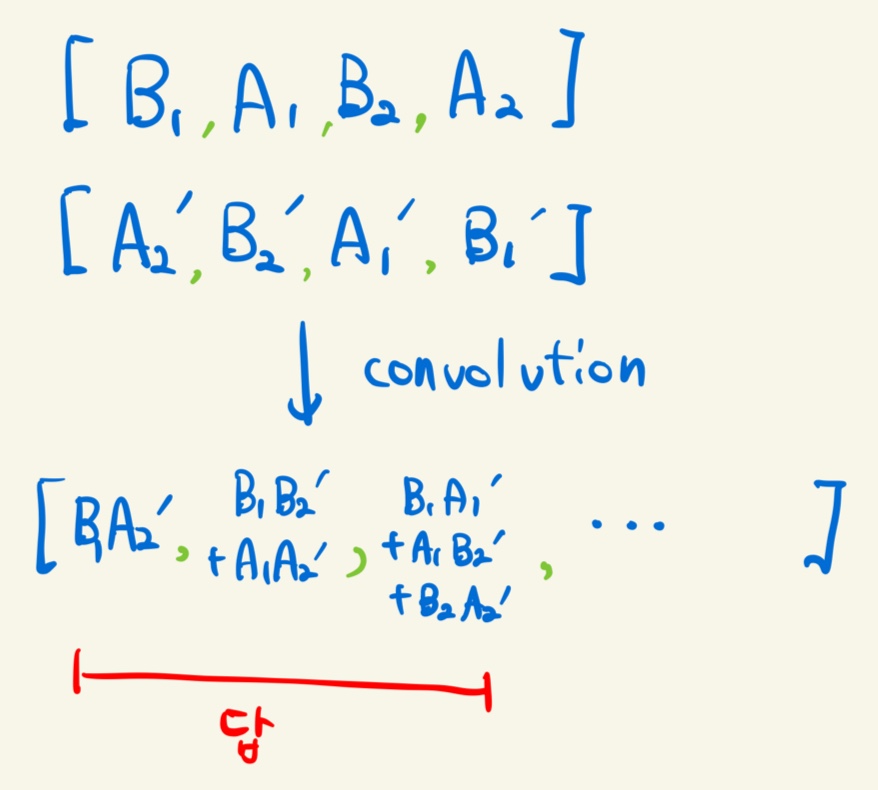 [ B₁, A₁, B₂, A₂ ]
[ A₂′, B₂′, A₁′, B₁′ ]
↓ convolution
[ B₁A₂′, B₁B₂′ + A₁A₂′, B₁A₁′ + A₁B₂′ + B₂A₂′, ... ]
답